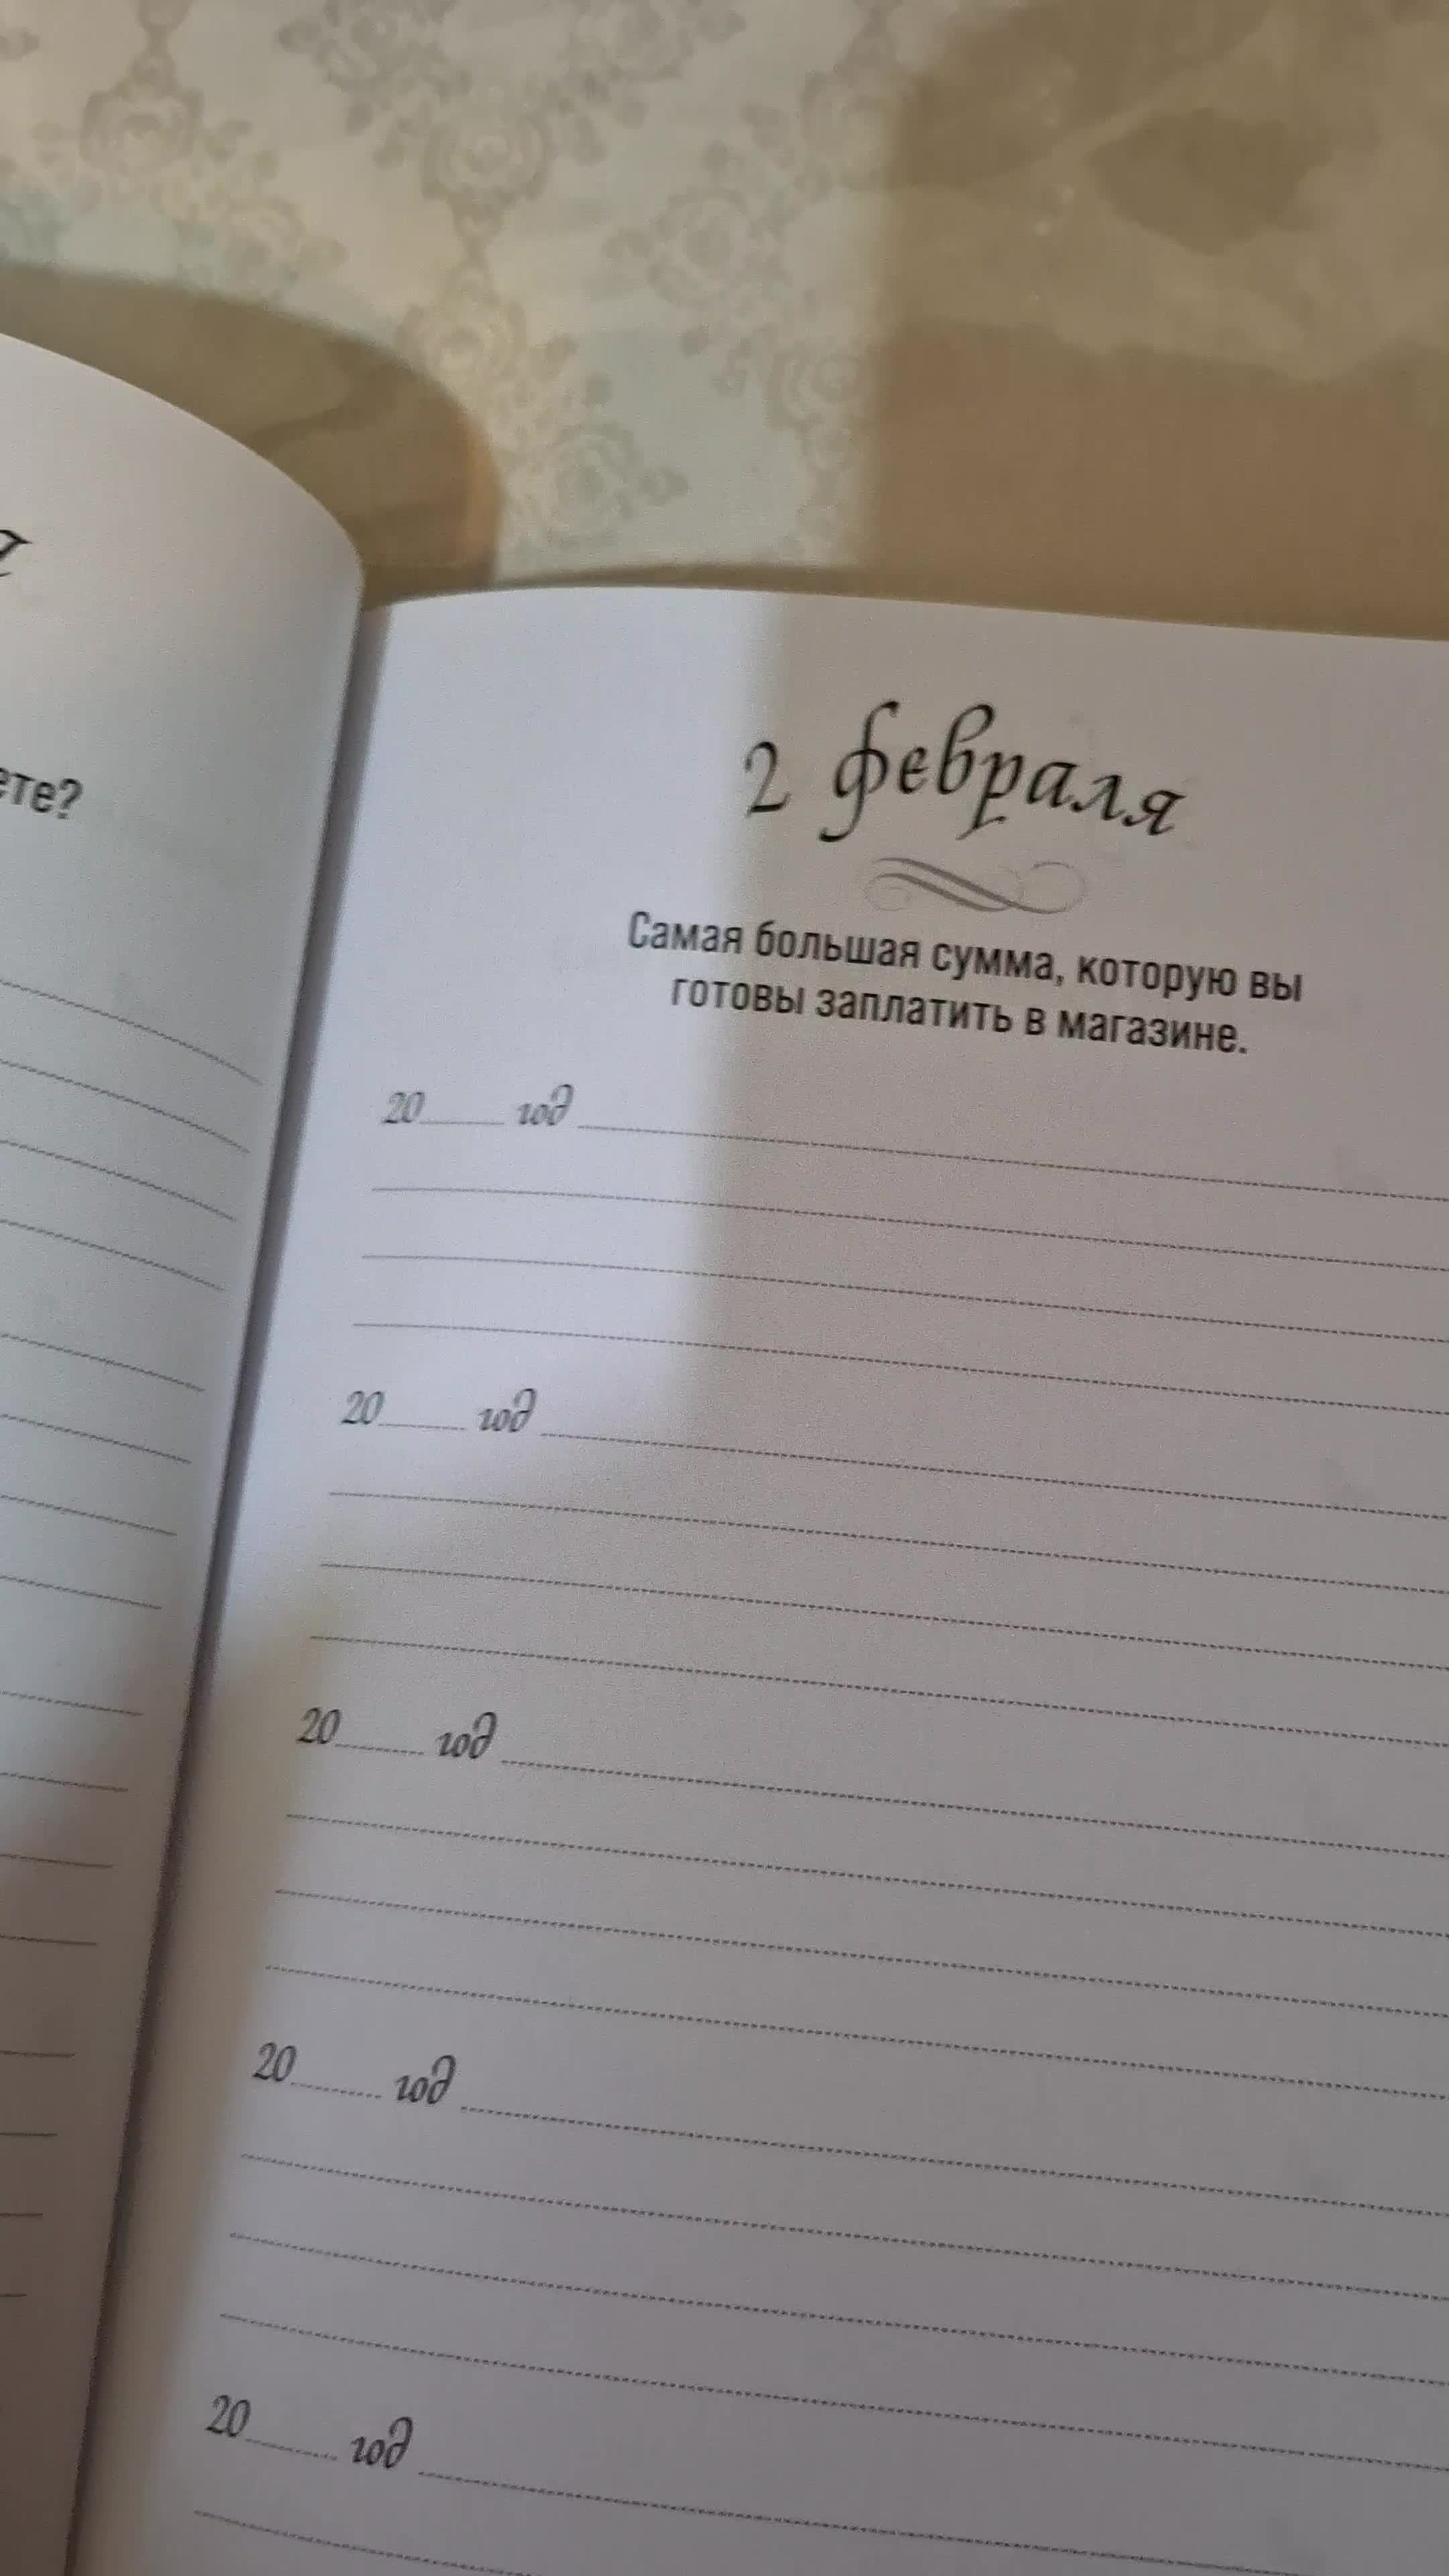 2 февраля
Самая большая сумма, которую вы
готовы заплатить в магазине.
20 год
20 год
20 год
20 год
20 год